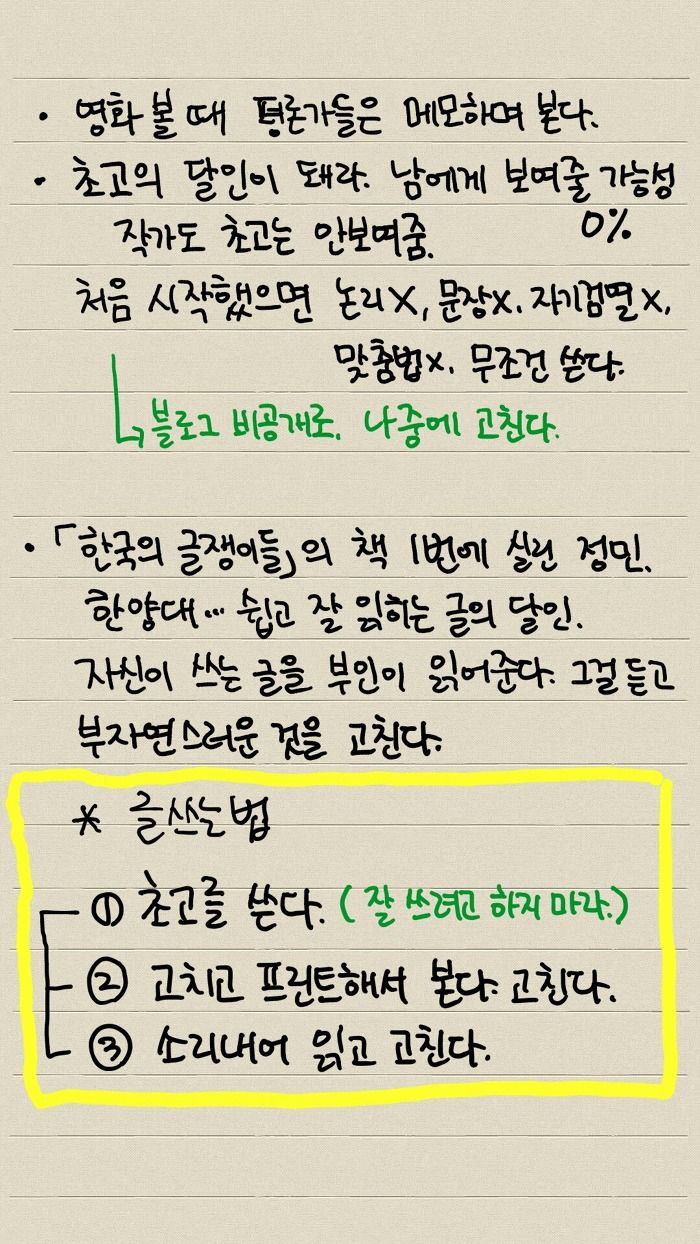 • 영화 볼 때 평론가들은 메모하며 본다.
• 초고의 달인이 돼라. 남에게 보여줄 가능성
작가도 초고는 안보여줌. 0%
처음 시작했으면 논리X, 문장X. 자기검열X,
맞춤법X. 무조건 쓴다.
블로그 비공개로. 나중에 고친다.
• 「한국의 글쟁이들」의 책 1번에 실린 정민.
한양대... 쉽고 잘 읽히는 글의 달인.
자신이 쓰는 글을 부인이 읽어준다. 그걸 듣고
부자연스러운 것을 고친다.
* 글쓰는법
① 초고를 쓴다. (잘 쓰려고 하지 마라.)
② 고치고 프린트해서 본다. 고친다.
③ 소리내어 읽고 고친다.